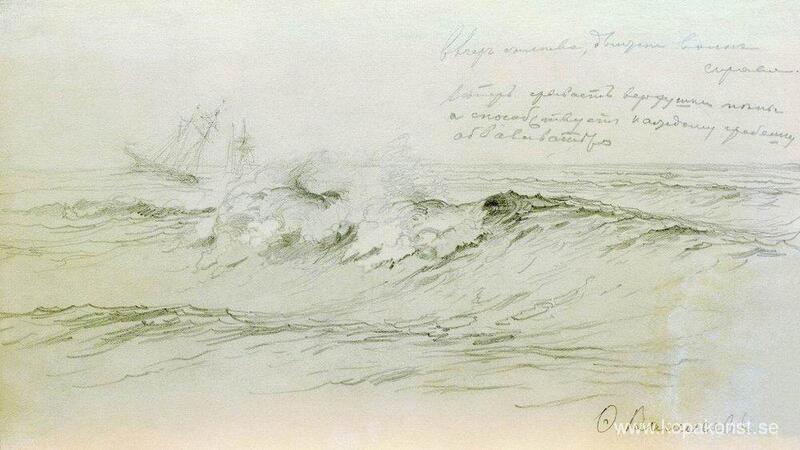 Вѣтеръ слѣва, движетъ волны
справа.
Вѣтеръ срываетъ верхушки волны
а способствуетъ каждому гребешку
обваливаться
www.kopakonst.se